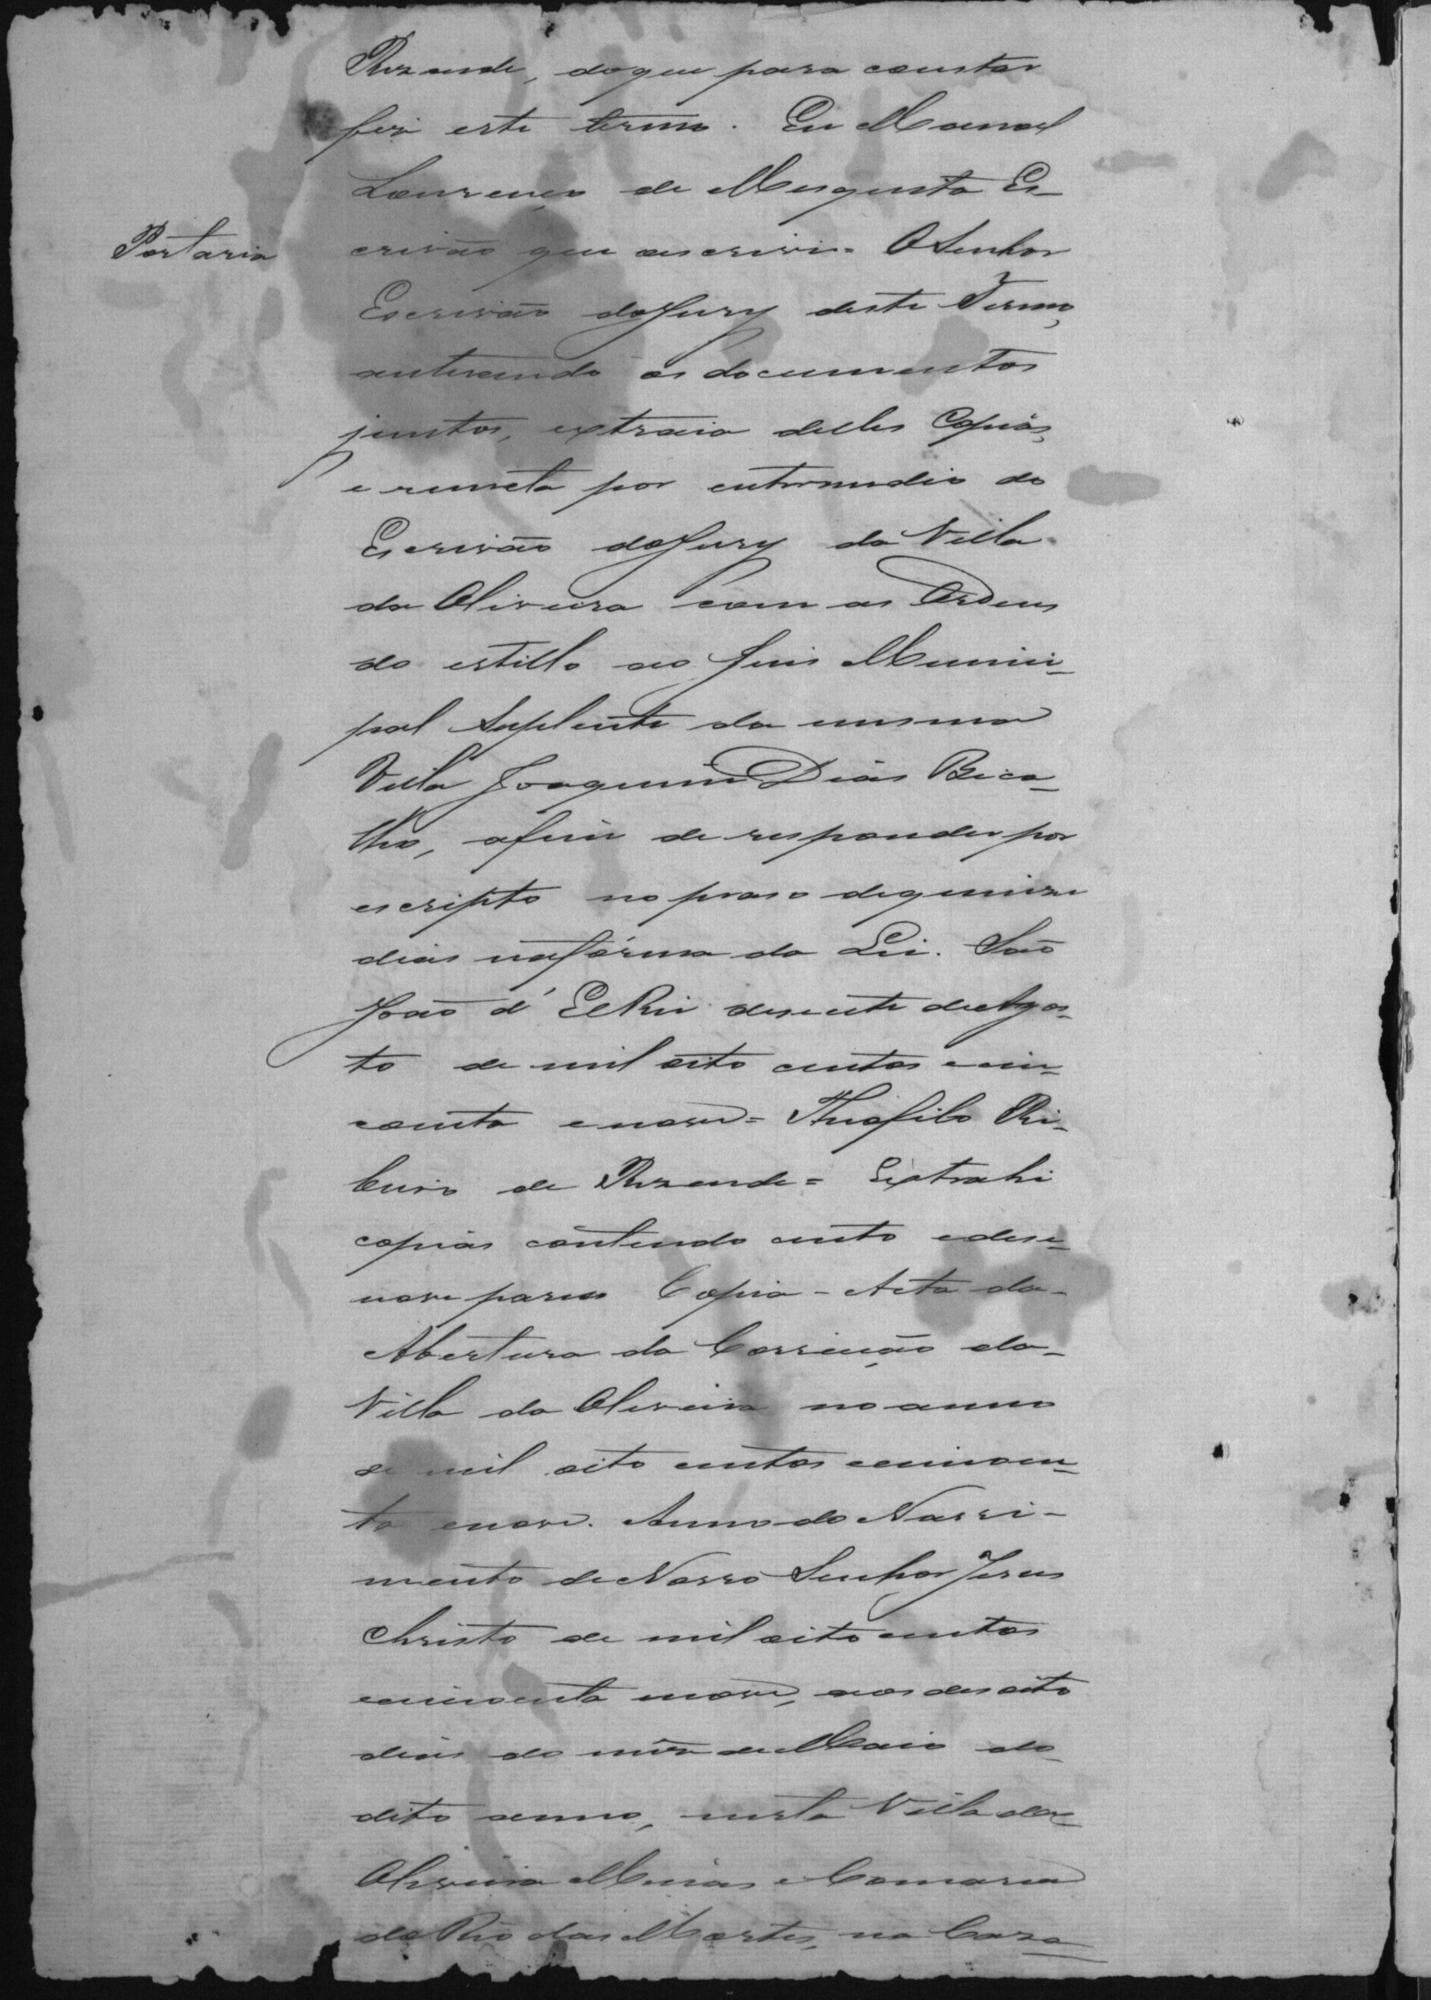 Rezende, do que para constar
fiz este termo. Eu Manoel
Lourenço de Mesquita Es-
Portaria
crivão que escrivi = O Senhor
Escrivão do Jury deste Termo,
autuando os documentos
juntos, extraia delles Copias,
e remeta por entremedio do
Escrivão do Jury da Villa
da Oliveira com as Ordens
do estillo ao Juis Munici-
pal Suplente da mesma
Villa Joaquim Dias Bica-
lho, afim de responder por
escripto no praso de quinze
dias na fórma da Lei. São
João d'El Rei desesete de Agos-
to de mil oito centos e cin-
coenta e nove = Theofilo Ri-
beiro de Rezende = Extrahi
copias contendo cento e dese-
nove Copia - Acta da
Abertura da Correição da
Villa da Oliveira no anno
de mil oito centos e cincoen-
ta e nove. Anno do Nassi-
mento de Nosso Senhor Jesus
Christo de mil oito centos
e cincoenta e nove, aos desoito
dias do mez de Maio do
dito anno, nesta Villa da
Oliveira Minas e Comarca
do Rio das Mortes, na Caza